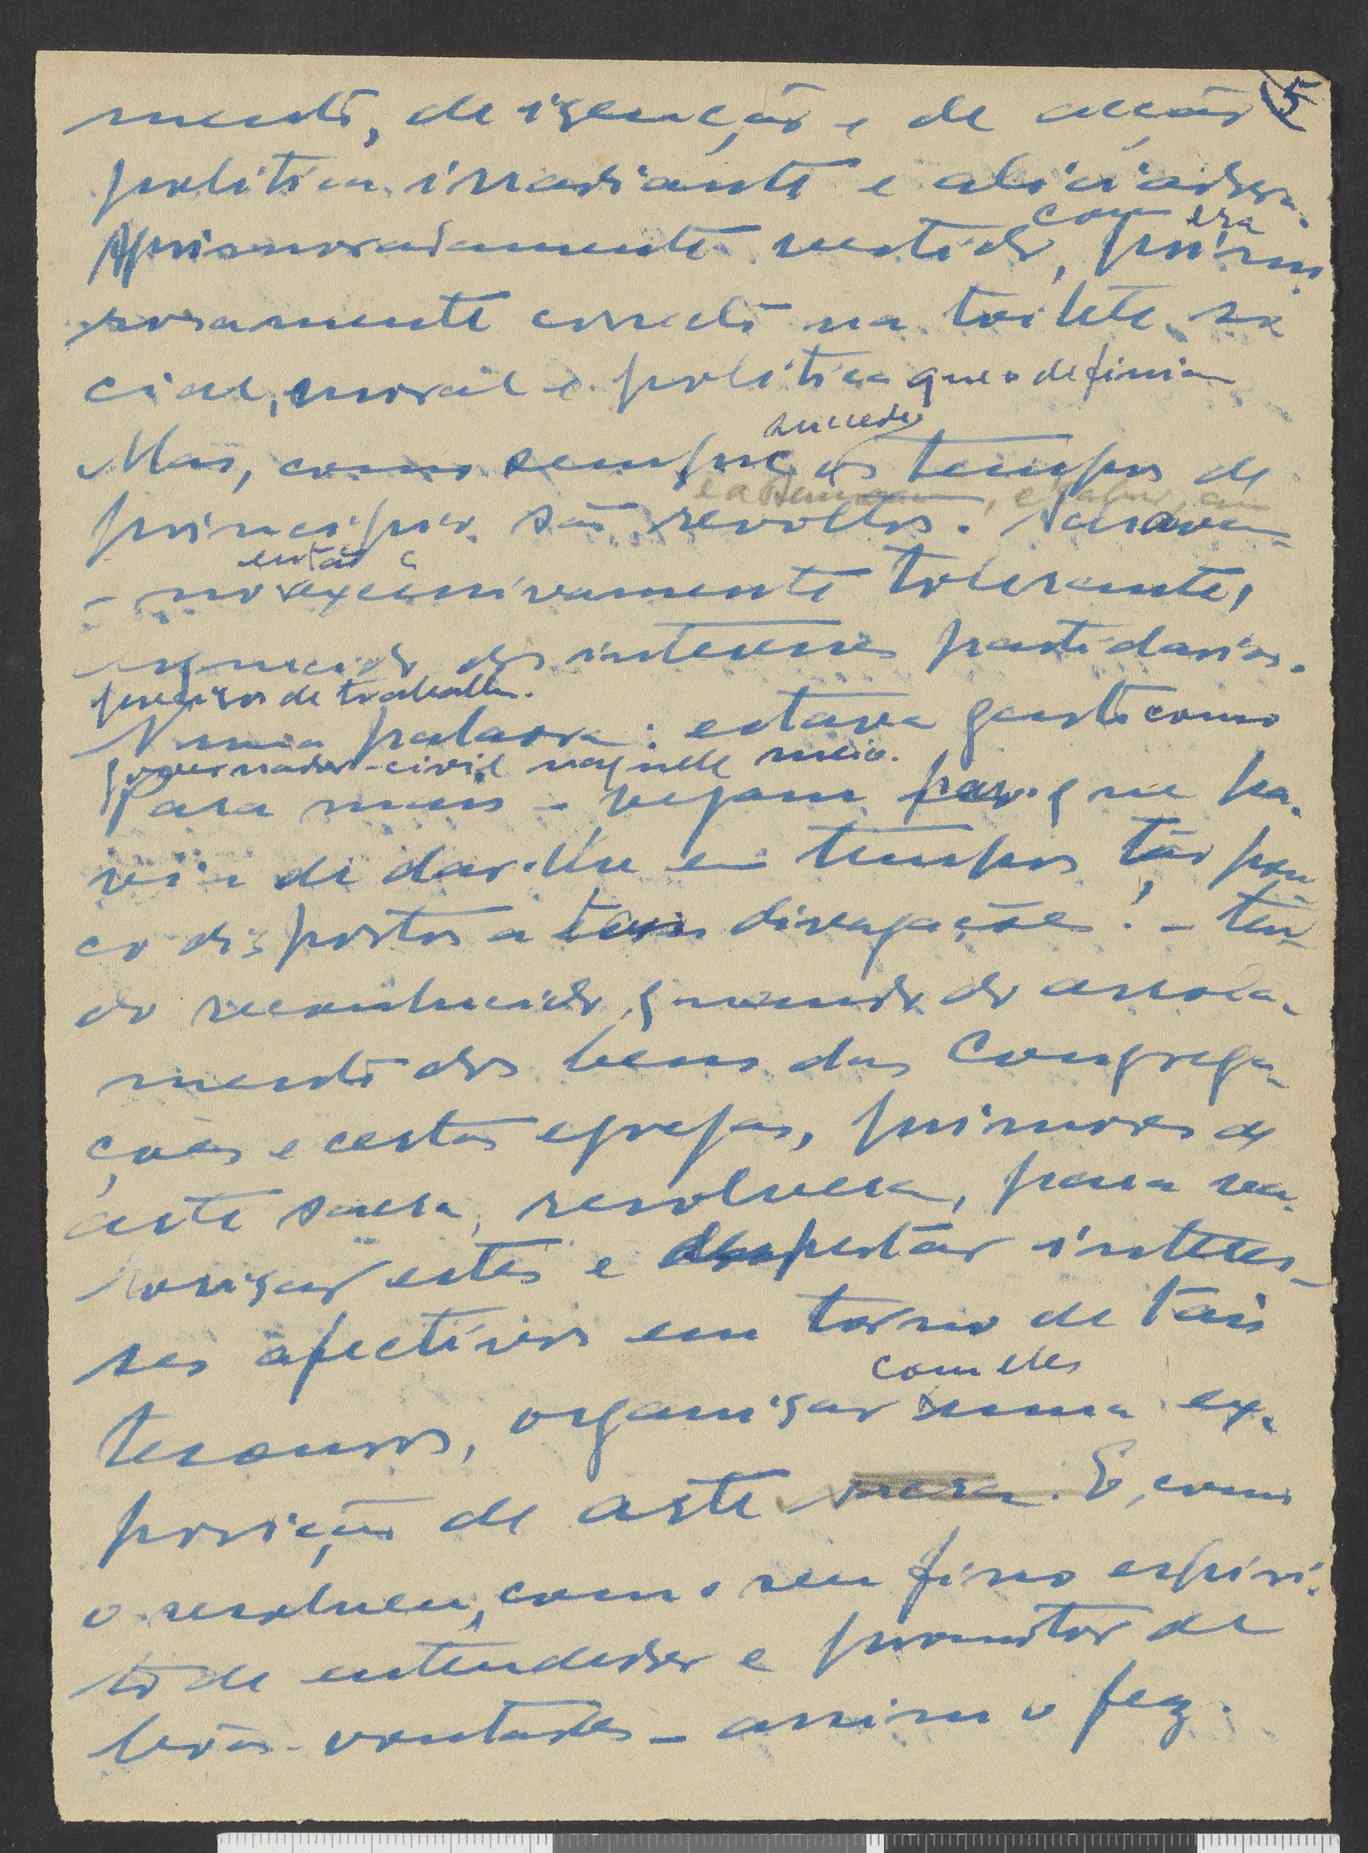 5
mento, de isenção e de acção
politica irradiante e aliciadora.
com era
Aprimoradamente vestido, primo
rosamente correcto na toilete so
cial, moral e politica que o definia
sucede
Mas, como sempre, os tempos de
principio são revoltos. Acusava-
então
- no excessivamente tolerante,
esquecido dos interesses partidarios.
precisos de trabalho.
Numa palavra: estava gasto como
governador-civil naquele meio.
Para mais - vejam para que ha-
via de dar-lhe em tempos tão pou
co dispostos a tais divagações! - ten-
do reconhecido, quando do arrola-
mento dos bens das Congrega-
ções e certas egrejas, primores de
arte sacra, resolvera, para va-
lorisar estes e despertar interes-
ses afectivos em torno de tais
com eles
tesouros, organisar uma ex-
posição de arte sacra. E, como
o resolveu, com o seu fino espiri-
to de entendedor e promotor de
bôas vontades - assim o fez.